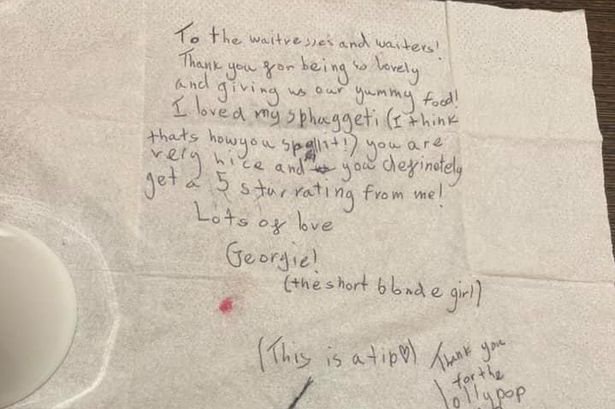 To the waitresses and waiters!
Thank you for being so lovely
and giving us our yummy food!
I loved my sphaggeti (I think
thats how you spellit!) you are
very nice and you definetely
get a 5 star rating from me!
Lots of love
Georgie!
(the short blonde girl)
(This is a tip♡)
Thank you
for the
lollypop